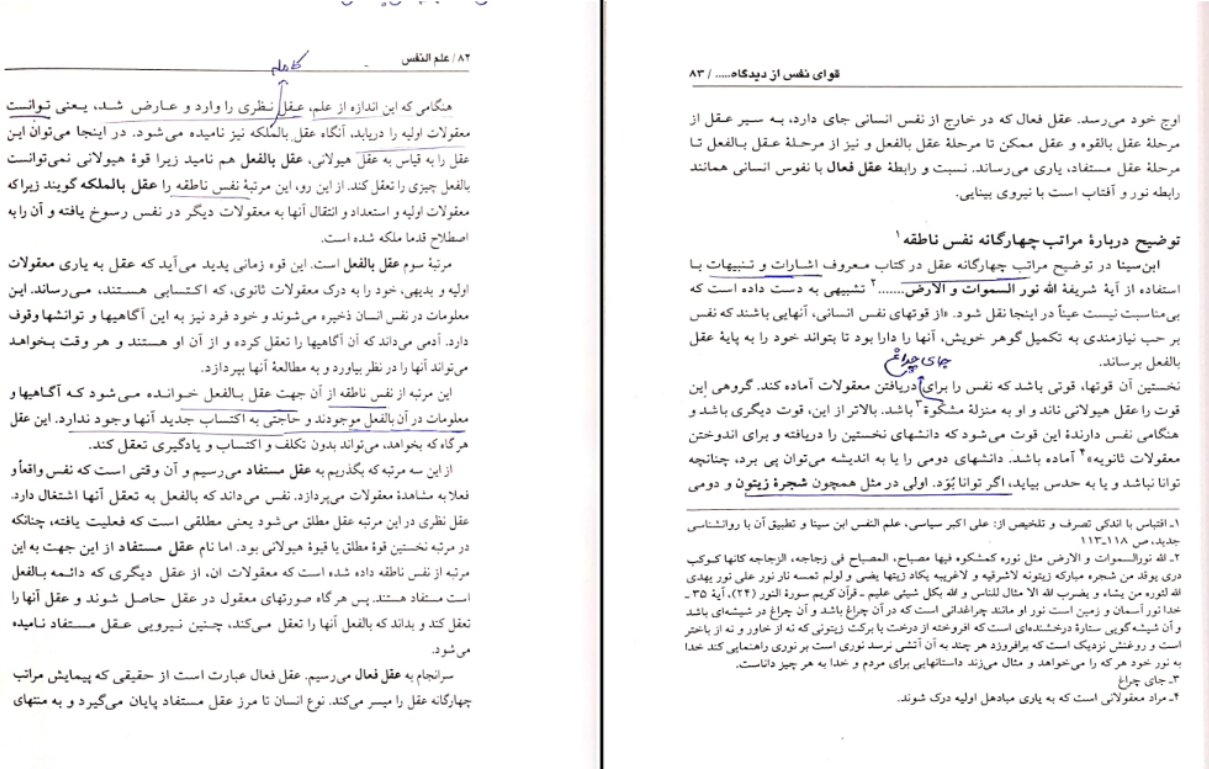 ۸۲ / علم النفس
کامله
هنگامی که این اندازه از علم، عقل نظری را وارد و عارض شد، یعنی توانست
معقولات اولیه را دریابد، آنگاه عقل بالملکه نیز نامیده می‌شود. در اینجا می‌توان این
عقل را به قیاس به عقل هیولانی، عقل بالفعل هم نامید زیرا قوۀ هیولانی نمی‌توانست
بالفعل چیزی را تعقل کند. از این رو، این مرتبۀ نفس ناطقه را عقل بالملکه گویند زیرا که
معقولات اولیه و استعداد و انتقال آنها به معقولات دیگر در نفس رسوخ یافته و آن را به
اصطلاح قدما ملکه شده است.
مرتبۀ سوم عقل بالفعل است. این قوه زمانی پدید می‌آید که عقل به یاری معقولات
اولیه و بدیهی، خود را به درک معقولات ثانوی، که اکتسابی هستند، می‌رساند. این
معلومات در نفس انسان ذخیره می‌شوند و خود فرد نیز به این آگاهیها و توانشها وقوف
دارد. آدمی می‌داند که آن آگاهیها را تعقل کرده و از آن او هستند و هر وقت بخواهد
می‌تواند آنها را در نظر بیاورد و به مطالعۀ آنها بپردازد.
این مرتبه از نفس ناطقه از آن جهت عقل بالفعل خوانده می‌شود که آگاهیها و
معلومات در آن بالفعل موجودند و حاجتی به اکتساب جدید آنها وجود ندارد. این عقل
هرگاه که بخواهد، می‌تواند بدون تکلف و اکتساب و یادگیری تعقل کند.
از این سه مرتبه که بگذریم به عقل مستفاد می‌رسیم و آن وقتی است که نفس واقعاً و
فعلا به مشاهدۀ معقولات می‌پردازد. نفس می‌داند که بالفعل به تعقل آنها اشتغال دارد.
عقل نظری در این مرتبه عقل مطلق می‌شود یعنی مطلقی است که فعلیت یافته، چنانکه
در مرتبه نخستین قوۀ مطلق یا قیوۀ هیولانی بود. اما نام عقل مستفاد از این جهت به این
مرتبه از نفس ناطقه داده شده است که معقولات ان، از عقل دیگری که دائمه بالفعل
است مستفاد هستند. پس هر گاه صورتهای معقول در عقل حاصل شوند و عقل آنها را
تعقل کند و بداند که بالفعل آنها را تعقل می‌کند، چنین نیرویی عقل مستفاد نامیده
می‌شود.
سرانجام به عقل فعال می‌رسیم. عقل فعال عبارت است از حقیقی که پیمایش مراتب
چهارگانه عقل را میسر می‌کند. نوع انسان تا مرز عقل مستفاد پایان می‌گیرد و به منتهای
قوای نفس از دیدگاه..... / ۸۳
اوج خود می‌رسد. عقل فعال که در خارج از نفس انسانی جای دارد، به سیر عقل از
مرحلۀ عقل بالقوه و عقل ممکن تا مرحلۀ عقل بالفعل و نیز از مرحلۀ عقل بالفعل تا
مرحلۀ عقل مستفاد، یاری می‌رساند. نسبت و رابطۀ عقل فعال با نفوس انسانی همانند
رابطه نور و آفتاب است با نیروی بینایی.
توضیح دربارۀ مراتب چهارگانه نفس ناطقه۱
ابن‌سینا در توضیح مراتب چهارگانه عقل در کتاب معروف اشارات و تنبیهات با
استفاده از آیۀ شریفۀ الله نور السموات و الارض.......۲ تشبیهی به دست داده است که
بی‌مناسبت نیست عیناً در اینجا نقل شود. «از قوتهای نفس انسانی، آنهایی باشند که نفس
بر حب نیازمندی به تکمیل گوهر خویش، آنها را دارا بود تا بتواند خود را به پایۀ عقل
بالفعل برساند.
جای چراغ
نخستین آن قوتها، قوتی باشد که نفس را برای دریافتن معقولات آماده کند. گروهی این
قوت را عقل هیولانی ناند و او به منزلۀ مشکوة۳ باشد. بالاتر از این، قوت دیگری باشد و
هنگامی نفس دارندۀ این قوت می‌شود که دانشهای نخستین را دریافته و برای اندوختن
معقولات ثانویه»۴ آماده باشد. دانشهای دومی را یا به اندیشه می‌توان پی برد، چنانچه
توانا نباشد و یا به حدس بیاید، اگر توانا بُوَد. اولی در مثل همچون شجرۀ زیتون و دومی
۱ـ اقتباس با اندکی تصرف و تلخیص از: علی اکبر سیاسی، علم النفس ابن سینا و تطبیق آن با روانشناسی
جدید، ص ۱۱۸ـ۱۱۳
۲ـ لله نورالسموات و الارض مثل نوره کمشکوه فیها مصباح، المصباح فی زجاجه، الزجاجه کانها کوکب
دری یوقد من شجره مبارکه زیتونه لاشرقیه و لاغریبه یکاد زیتها یضی و لولم تمسه نار نور علی نور یهدی
الله لثوره من یشاء و یضرب الله الا مثال للناس و الله بکل شیئی علیم ـ قرآن کریم سورۀ النور (۲۴)، آیۀ ۳۵ ـ
خدا نور آسمان و زمین است نور او مانند چراغدانی است که در آن چراغ باشد و آن چراغ در شیشه‌ای باشد
و آن شیشه گویی ستارۀ درخشنده‌ای است که افروخته از درخت با برکت زیتونی که نه از خاور و نه از باختر
است و روغنش نزدیک است که برافروزد هر چند به آن آتشی نرسد نوری است بر نوری راهنمایی کند خدا
به نور خود هر که را می‌خواهد و مثال می‌زند داستانهایی برای مردم و خدا به هر چیز داناست.
۳ـ جای چراغ
۴ـ مراد معقولانی است که به یاری مبادهل اولیه درک شوند.